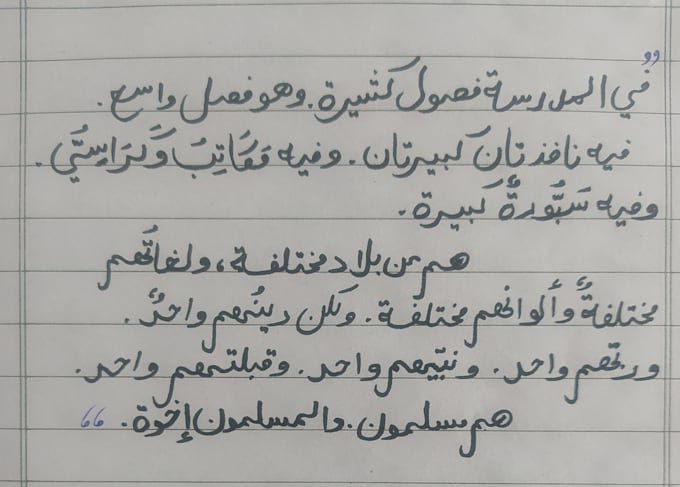 "في المدرسة فصول كثيرة. وهو فصل واسع.
فيه نافذتان كبيرتان. وفيه مَكَاتِبُ وَكَرَاسِيُّ.
وفيه سَبُّورةٌ كبيرة.
هم من بلاد مختلفة، ولغاتُهم
مختلفةٌ وألوانهم مختلفة. ولكن دينُهم واحدٌ.
وربّهم واحد. ونبيّهم واحد. وقبلتهم واحد.
هم مسلمون. والمسلمون إخوة."